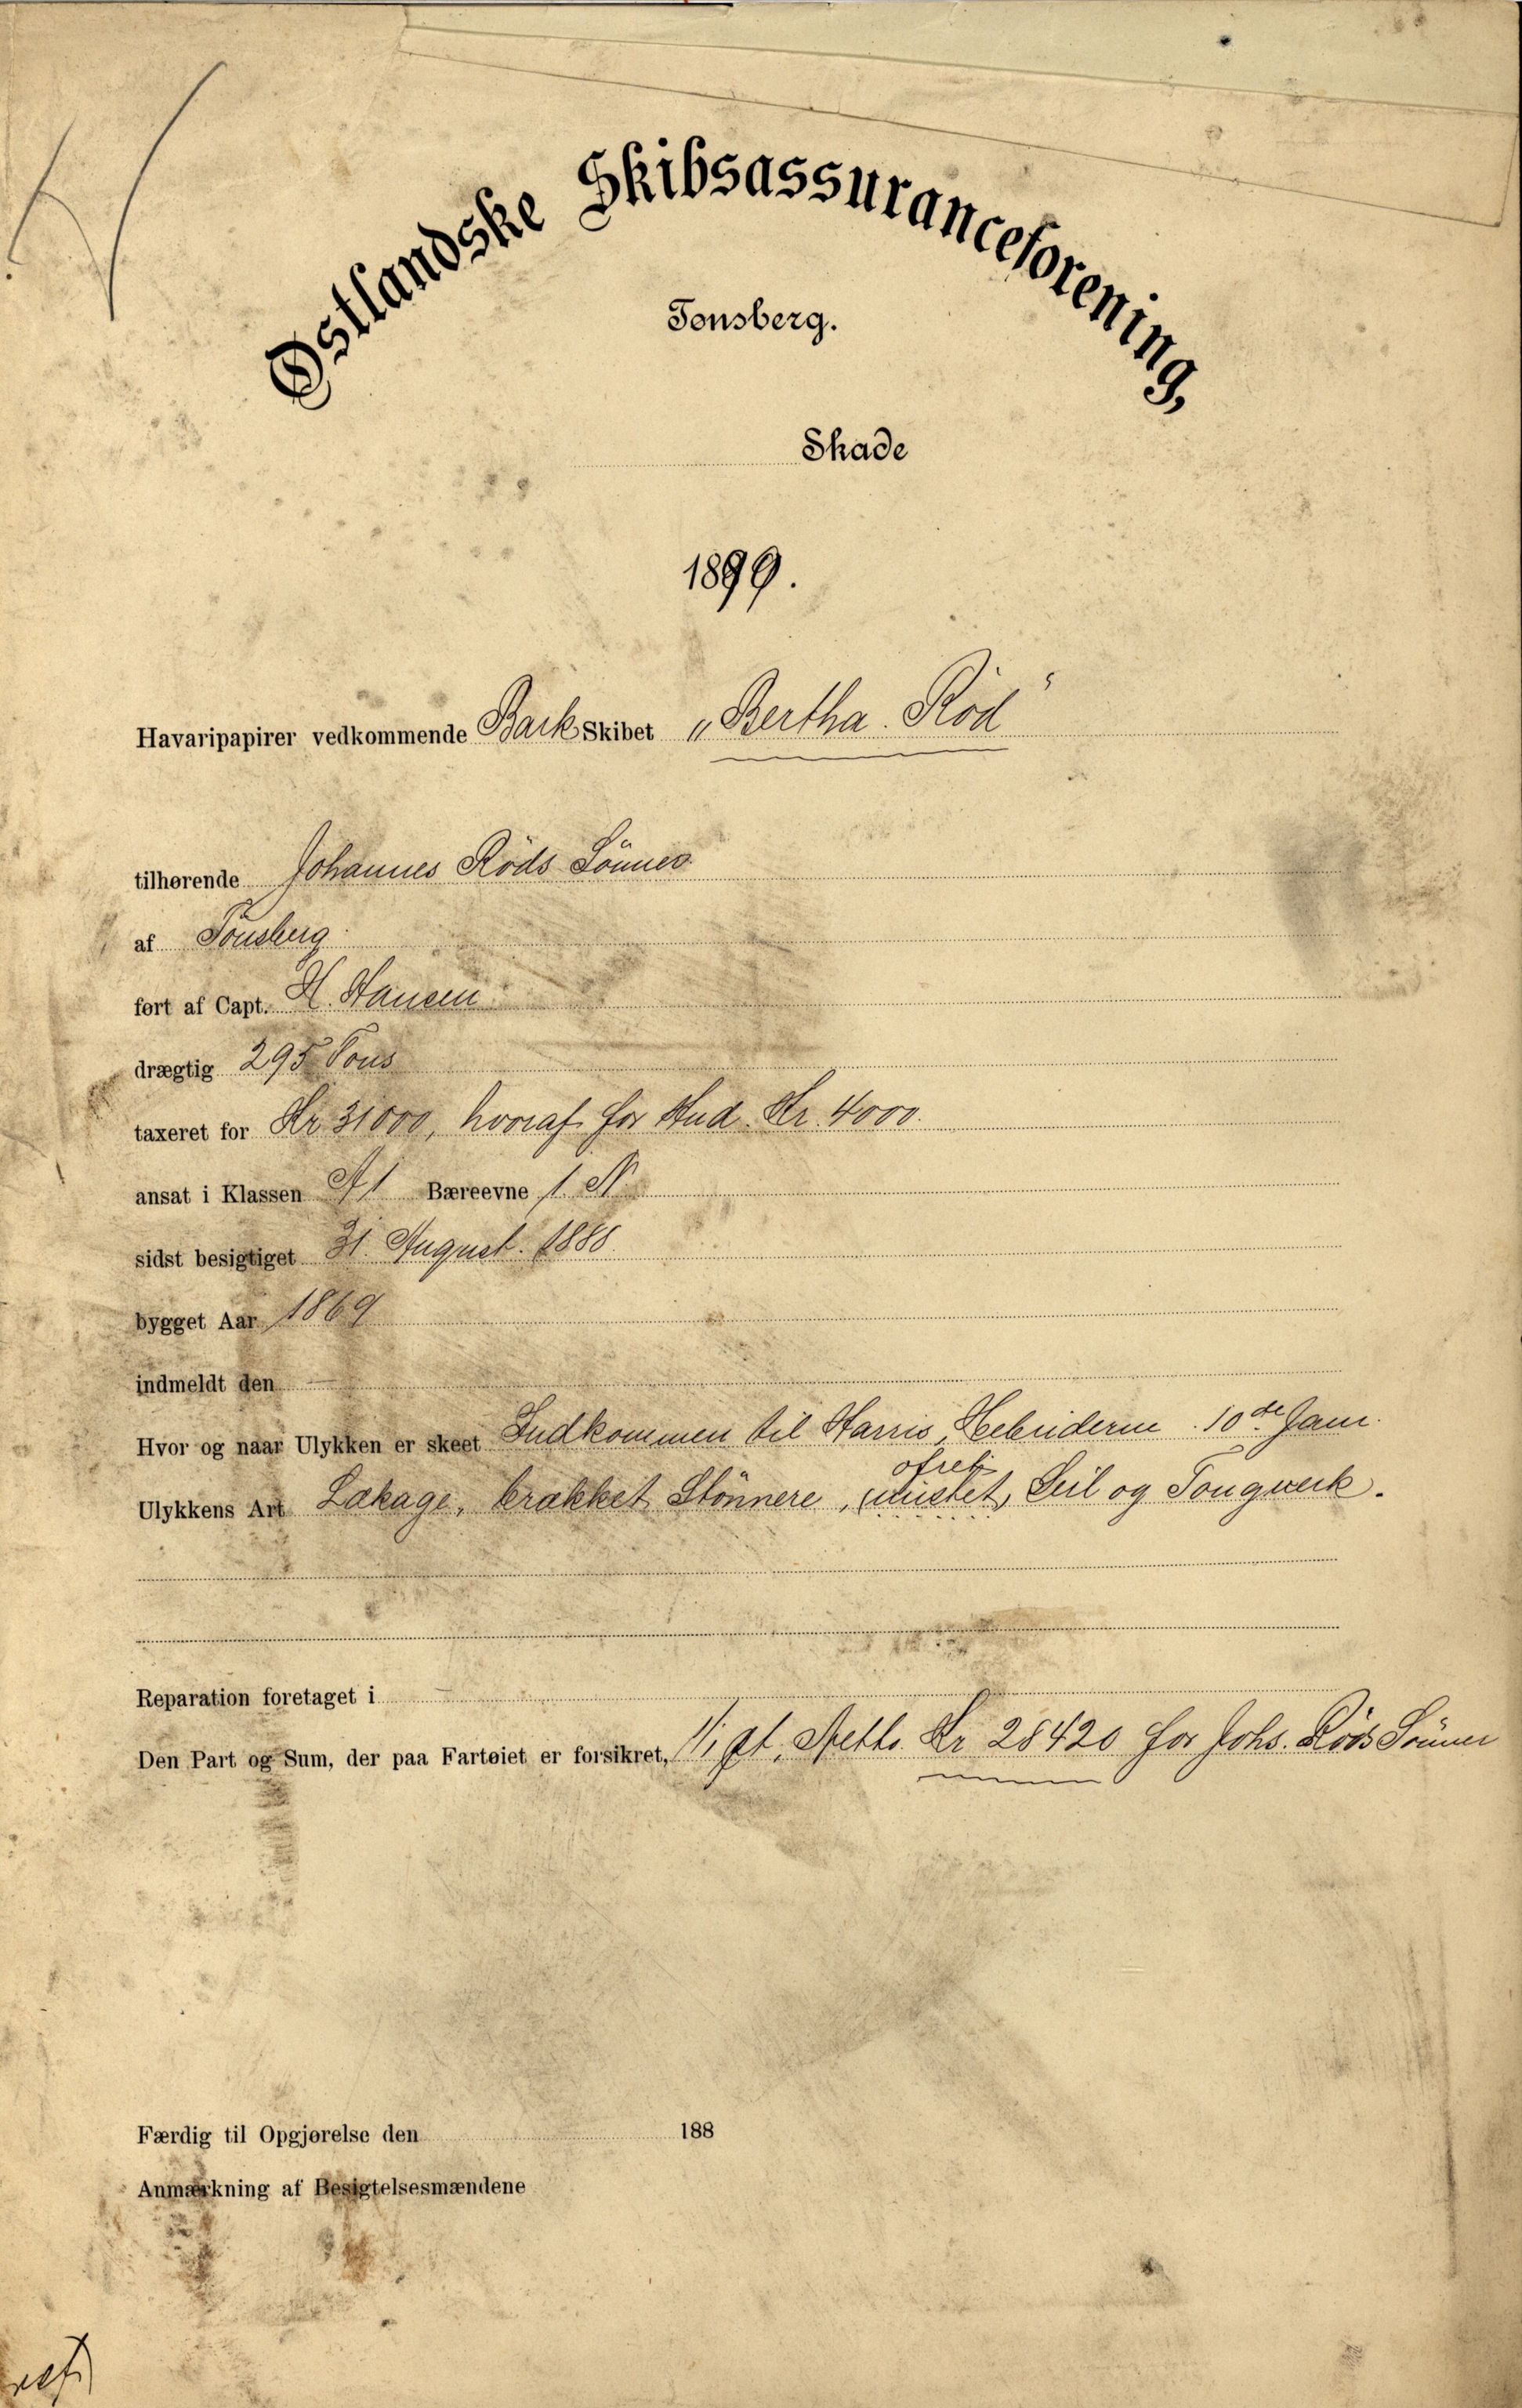 Østlandske Skibsassuranceforening,
Tonsberg.
Skade
1899.
Havaripapirer vedkommende Bark Skibet „Bertha Röd“
tilhørende Johannes Röds Sönner
af Tönsberg
ført af Capt. H. Hansen
drægtig 295 Tons
taxeret for Kr 31000, hvoraf for Hud Kr. 4000.
ansat i Klassen A 1 Bæreevne 1. N
sidst besigtiget 31. August. 1888
bygget Aar 1869
indmeldt den —
Hvor og naar Ulykken er skeet Indkommen til Harris, Hebriderne. 10de Janr.
ofret
Ulykkens Art Lækage, brækket Stönnere, (mistet) Seil og Tougværk.
Reparation foretaget i —
Den Part og Sum, der paa Fartøiet er forsikret, 1/1 pt. Netto Kr 28420 for Johs. Röds Sönner
Færdig til Opgjørelse den 188
Anmærkning af Besigtelsesmændene